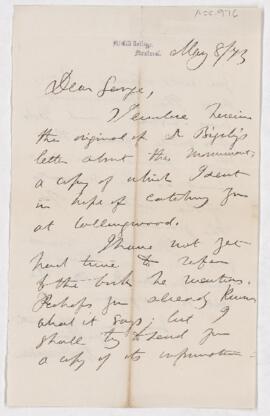 Acc. 976
McGill College,
Montreal.
May 8/73
Dear George,
I enclose herein
the original of Dr Bigsby's
letter about the Monument
a copy of which I sent
in hope of catching you
at Collingwood.
I have not yet
had time to refer
to the book he mentions.
Perhaps you already know
what it says; but I
shall try to send you
a copy of its information